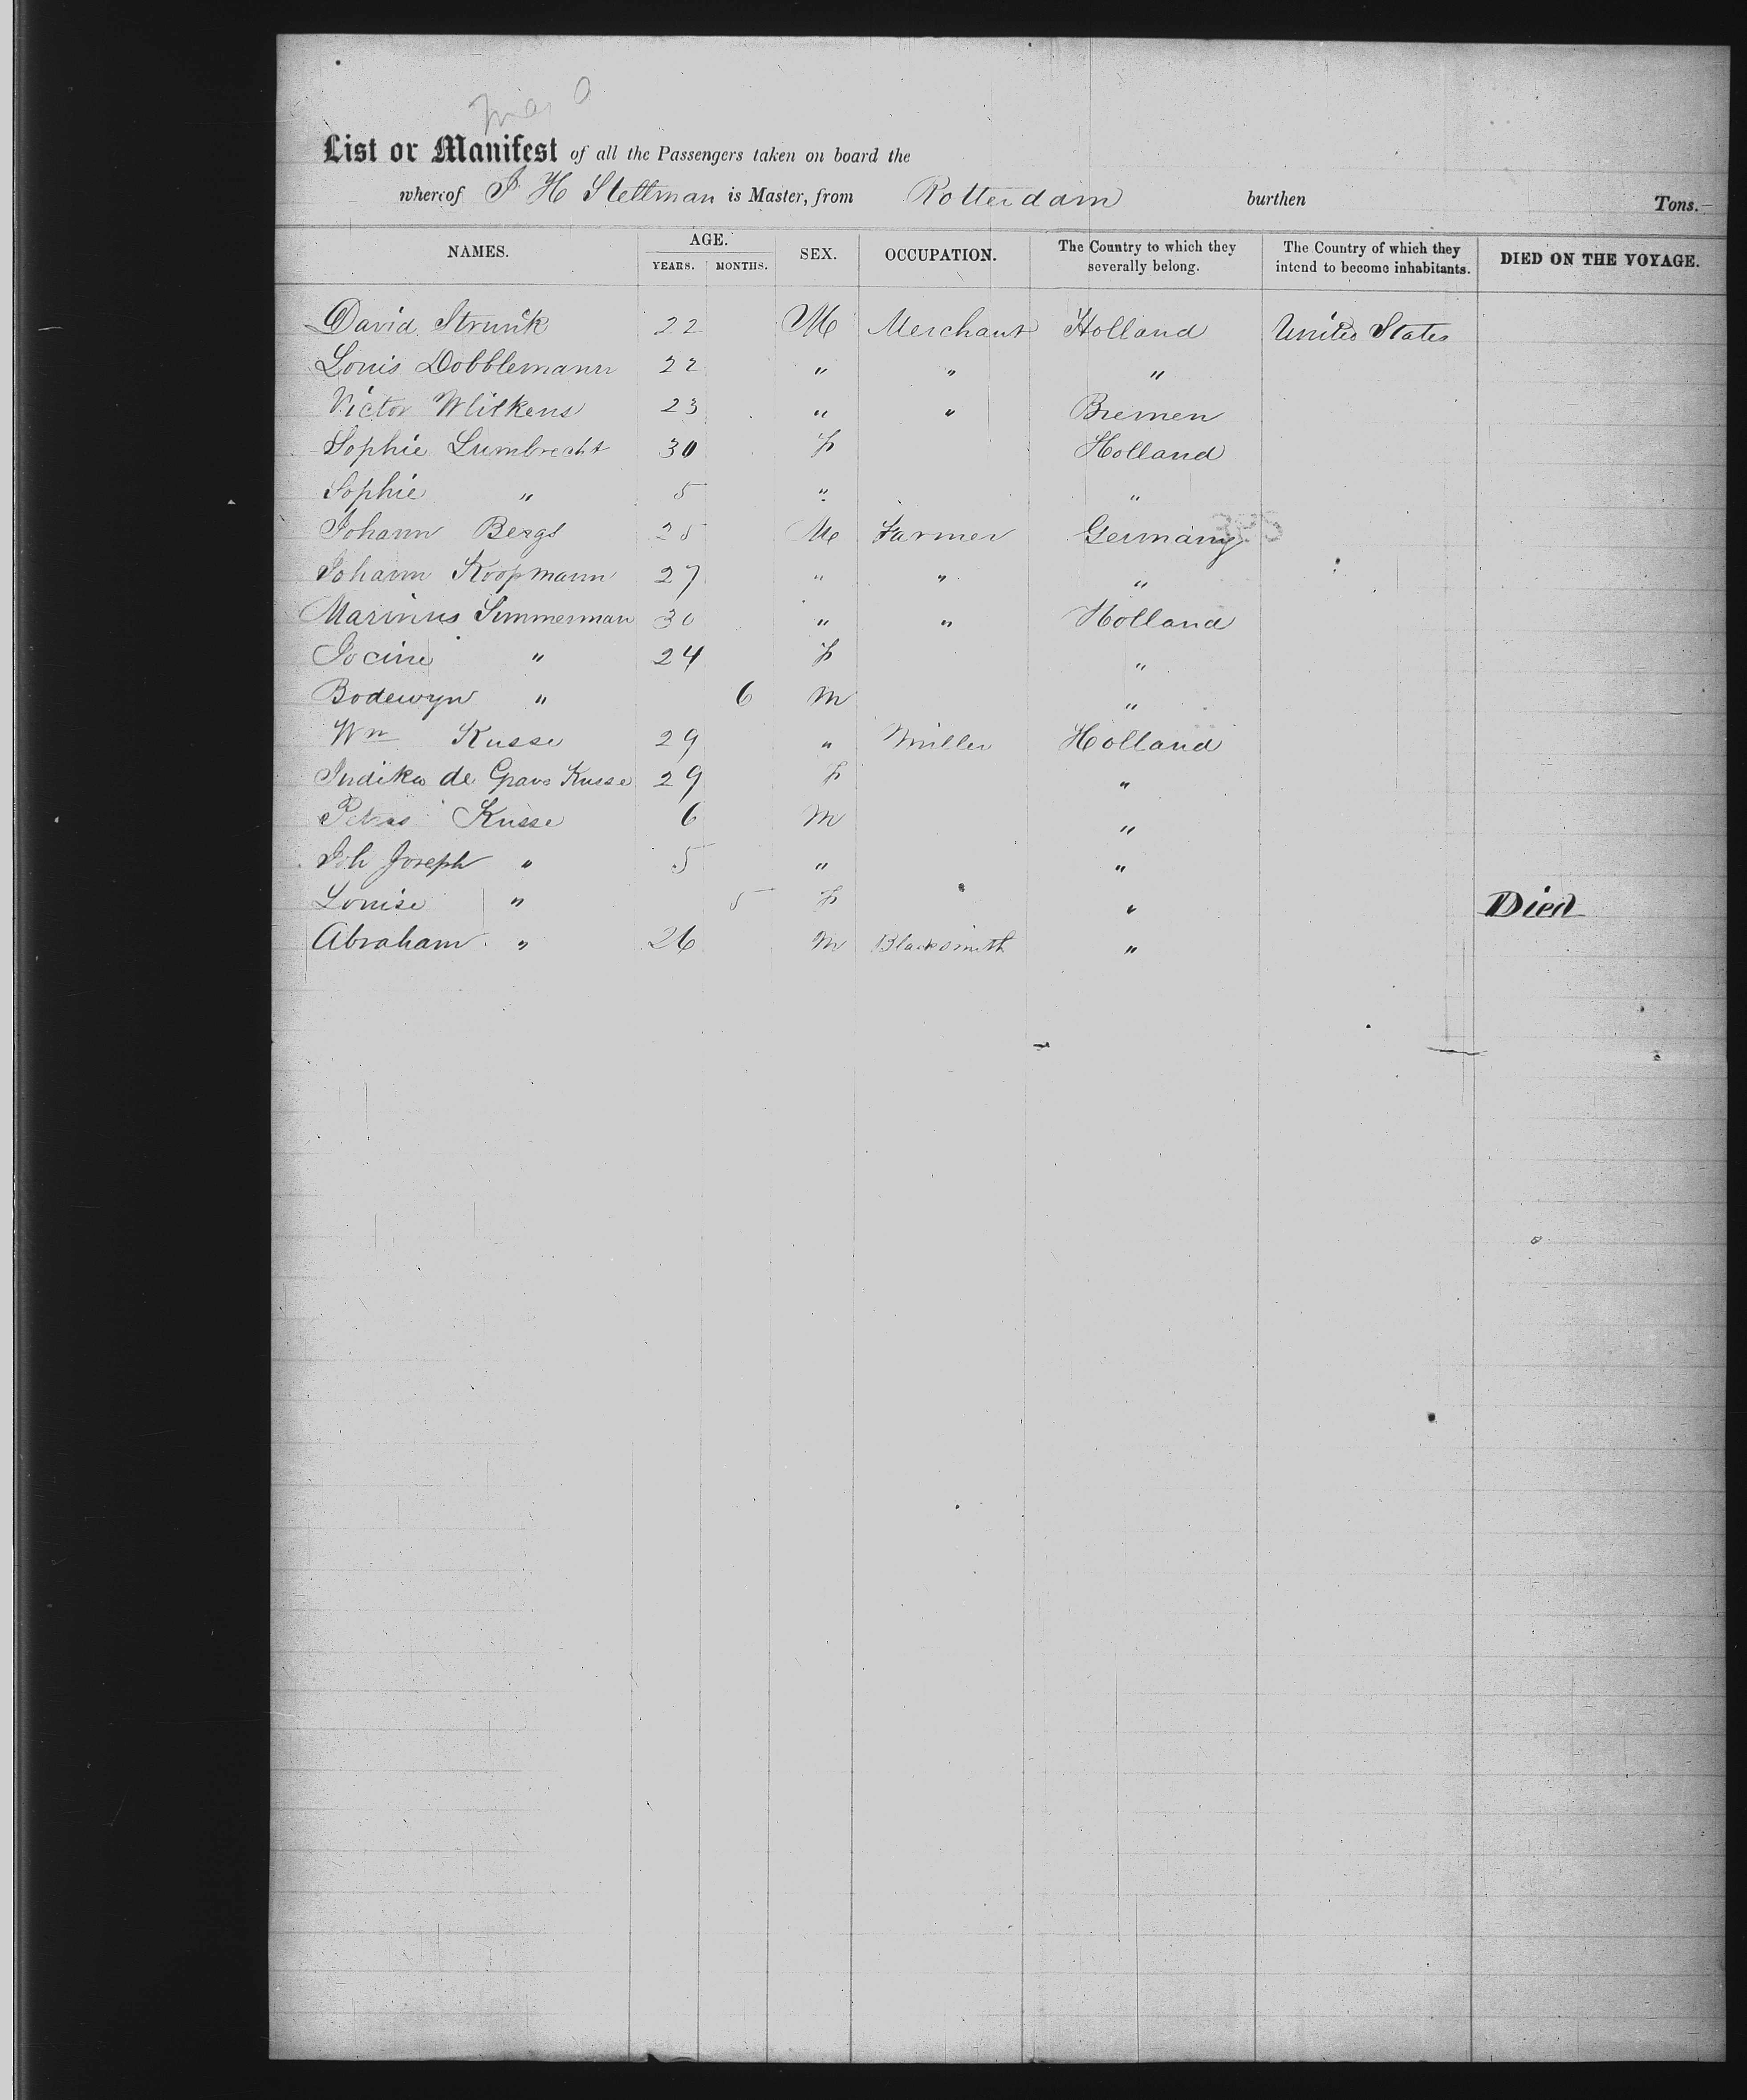 List or Manifest of all the Passengers taken on board the
whereof J. H Stettman is Master, from Rotterdam burthen Tons.
NAMES. AGE. YEARS. MONTHS. SEX. OCCUPATION. The Country to which they severally belong. The Country of which they intend to become inhabitants. DIED ON THE VOYAGE.
David Strunk 22 M Merchant Holland United States
Louis Dobblemann 22 " " "
Victor 23 " " Bremen
Sophie Lumbrecht 30 F Holland
Sophie " 5 " "
Johann Bergs 25 M Farmer Germany
Johann Koopmann 27 " " "
Marinus Simmerman 30 " " Holland
Jocine " 24 F "
Bodewyn " 6 M "
Wm Kusse 29 " Miller Holland
de Kusse 29 F "
Petrus Kusse 6 M "
Joh Joseph " 5 " "
Louise " 5 F " Died
Abraham " 26 M Blacksmith "